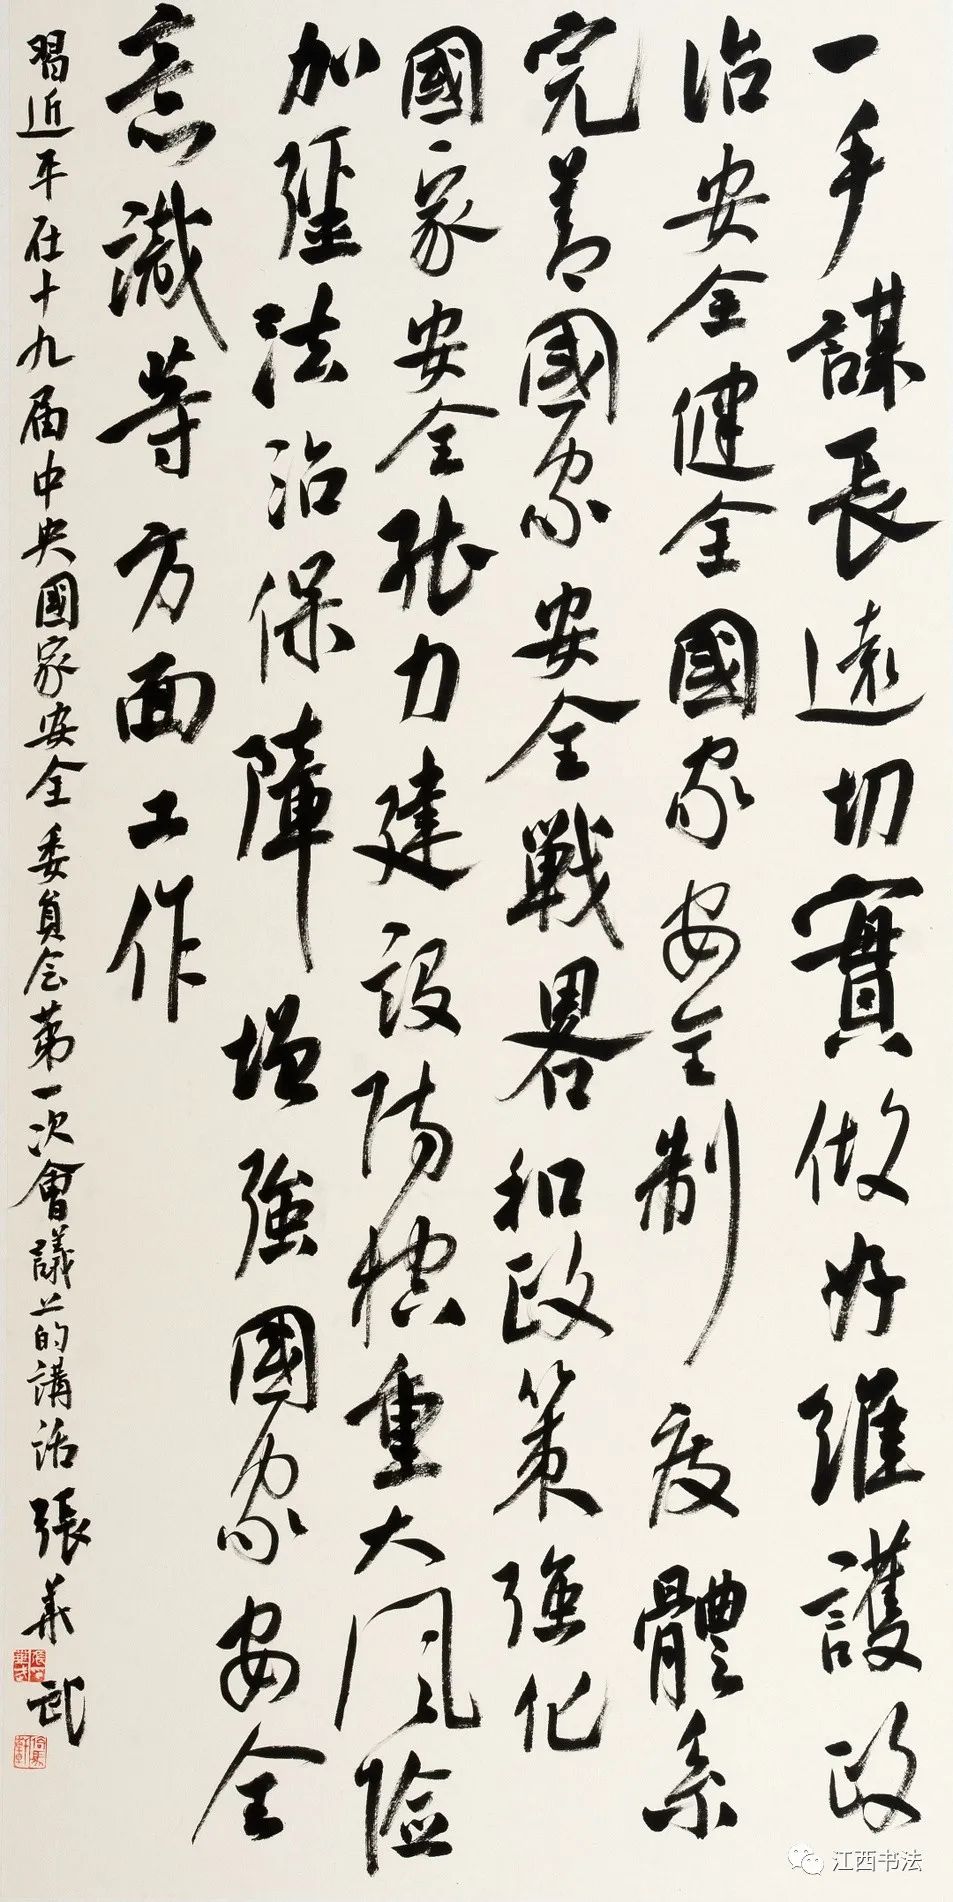 一手謀長遠切實做好維護政
治安全健全國家安全制度體系
完善國家安全戰畧和政策强化
國家安全能力建設防控重大风险
加强法治保障增強國家安全
意識等方面工作
習近平在十九届中央國家安全委員会第一次會議上的講话 張華武
江西书法